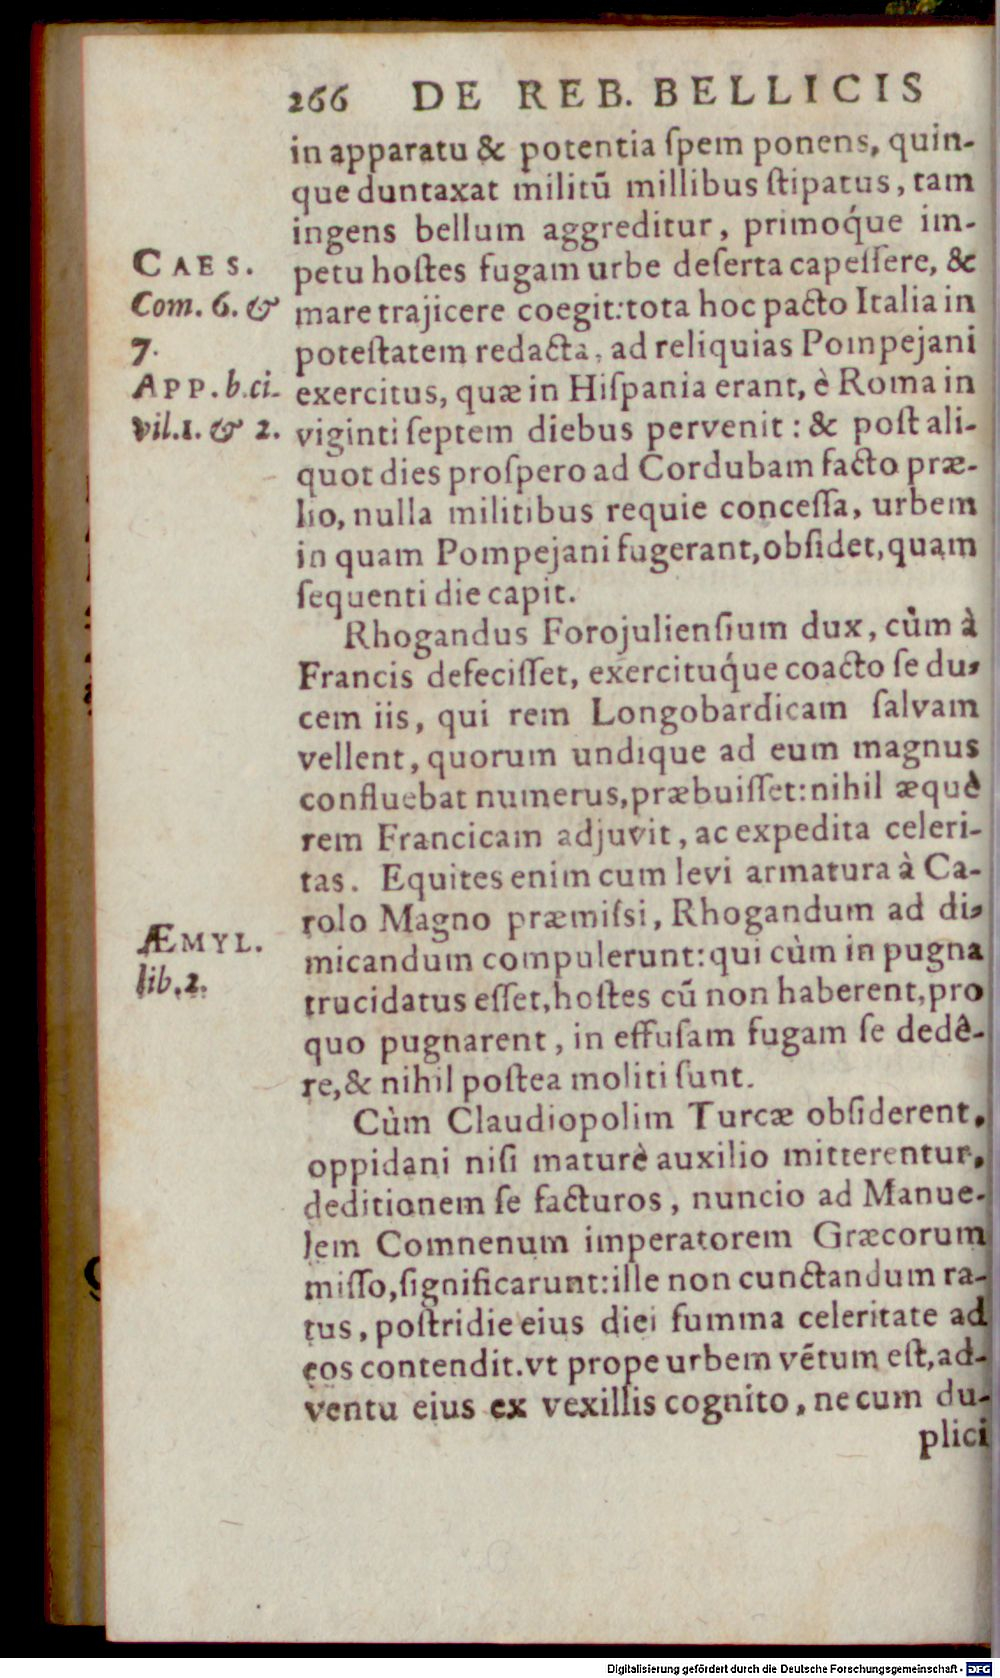 266 DE REB. BELLICIS
in apparatu & potentia ſpem ponens, quin-
que duntaxat militū millibus ſtipatus, tam
ingens bellum aggreditur, primoq́ue im-
petu hoſtes fugam urbe deſerta capeſſere, &
mare trajicere coegit: tota hoc pacto Italia in
poteſtatem redacta, ad reliquias Pompejani
exercitus, quæ in Hiſpania erant, è Roma in
viginti ſeptem diebus pervenit: & poſt ali-
quot dies proſpero ad Cordubam facto præ-
lio, nulla militibus requie conceſſa, urbem
in quam Pompejani fugerant, obſidet, quam
ſequenti die capit.
CAES.
Com. 6. &
7.
APP. b. ci-
vil. 1. & 2.
Rhogandus Forojulienſium dux, cùm à
Francis defeciſſet, exercituq́ue coacto ſe du-
cem iis, qui rem Longobardicam ſalvam
vellent, quorum undique ad eum magnus
confluebat numerus, præbuiſſet: nihil æquè
rem Francicam adjuvit, ac expedita celeri-
tas. Equites enim cum levi armatura à Ca-
rolo Magno præmiſsi, Rhogandum ad di-
micandum compulerunt: qui cùm in pugna
trucidatus eſſet, hoſtes cū non haberent, pro
quo pugnarent, in effuſam fugam ſe dedê-
re, & nihil poſtea moliti ſunt.
ÆMYL.
lib. 2.
Cùm Claudiopolim Turcæ obſiderent,
oppidani niſi maturè auxilio mitterentur,
deditionem ſe facturos, nuncio ad Manue-
lem Comnenum imperatorem Græcorum
miſſo, ſignificarunt: ille non cunctandum ra-
tus, poſtridie eius diei ſumma celeritate ad
eos contendit. vt prope urbem vētum eſt, ad-
ventu eius ex vexillis cognito, ne cum du-
plici
Digitalisierung gefördert durch die Deutsche Forschungsgemeinschaft - DFG